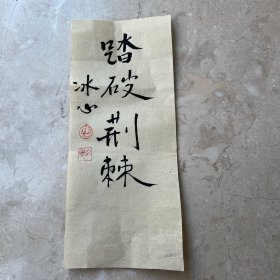 踏破荆棘
冰心